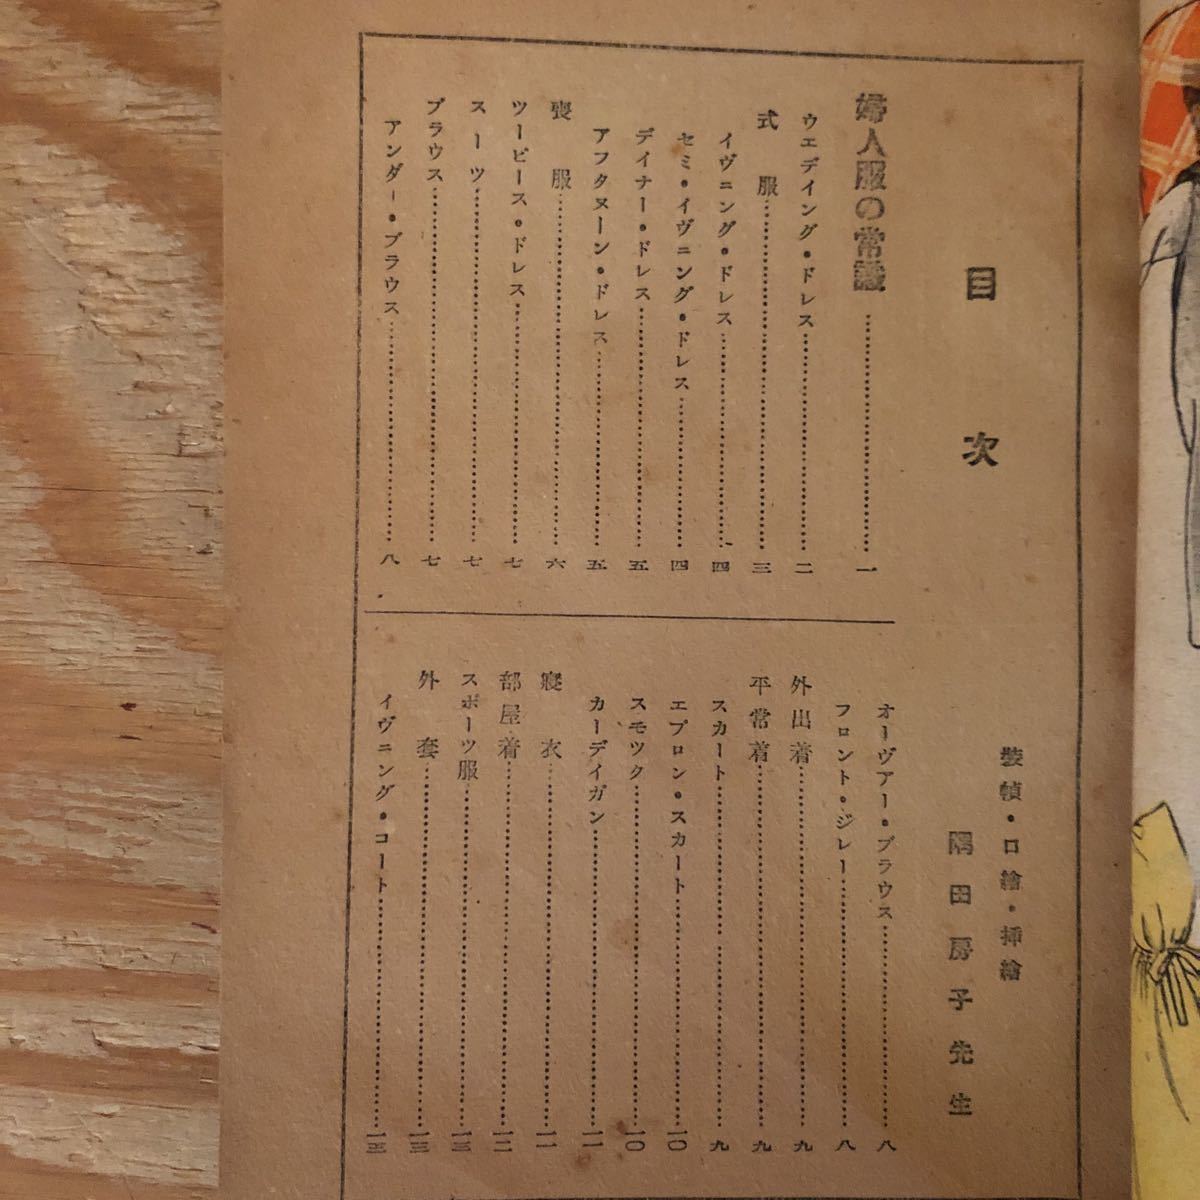 目次
装幀・口繪・挿繪
隅田房子先生
婦人服の常識……一
ウエデイング・ドレス……二
式服……三
イヴニング・ドレス……四
セミ・イヴニング・ドレス……四
デイナー・ドレス……五
アフタヌーン・ドレス……五
喪服……六
ツーピース・ドレス……七
スーツ……七
ブラウス……七
アンダー・ブラウス……八
オーヴアー・ブラウス……八
フロント・ジレー……八
外出着……九
平常着……九
スカート……九
エプロン・スカート……一〇
スモツク……一〇
カーデイガン……一一
寢衣……一一
部屋着……一二
スポーツ服……一三
外套……一三
イヴニング・コート……一三